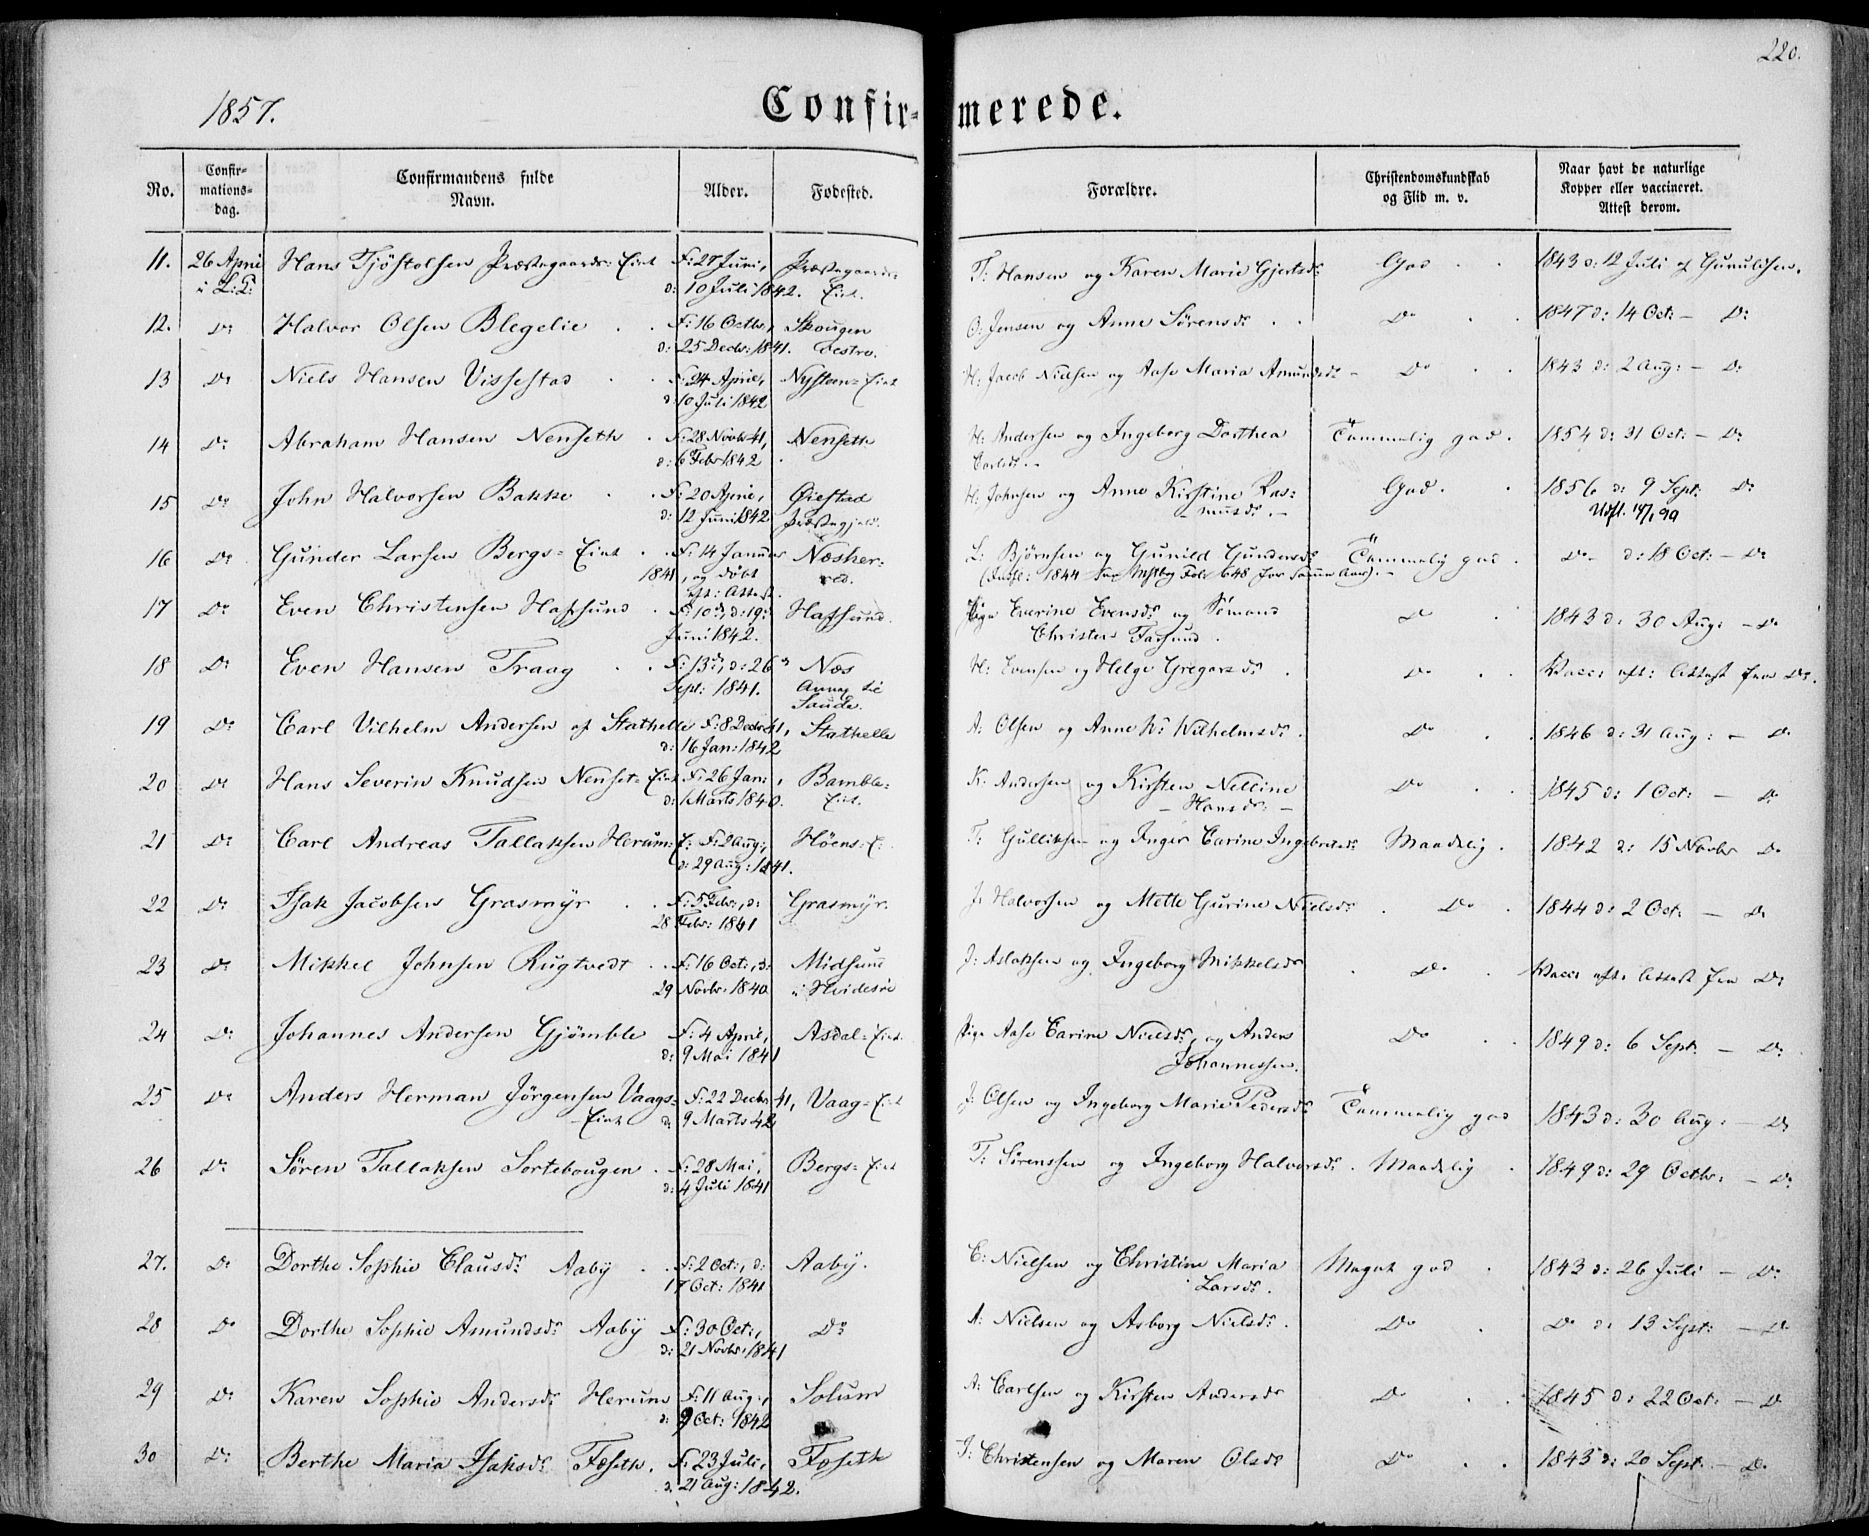 220.
1857.
Confir-
merede.
No.
Confir-
mations-
dag.
Confirmandens fulde
Navn.
Alder.
Fødested.
Forældre.
Christendomskundskab
og Flid m. v.
Naar havt de naturlige
Kopper eller vaccineret.
Attest derom.
11. 26 April Hans Tjöstolsen Præstegaards=Eiet F: 27 Juni, Præstegaards= T: Hansen og Karen Marie Gjertsd: God 1843 d: 12 Juli af
d: 10 Juli 1842. Eiet.
12. Do Halvor Olsen Blegelie F: 16 Octbr, Skougen O: Jensen og Anne Sörensd: Do 1847 d: 14 Oct: – Do
d: 25 Decbr: 1841. vestre.
13 Do Niels Hansen Vissestad F: 24 April, Nystuen=Eiet H: Jacob Nielsen og Aase Maria Amundsd: Do 1843 d: 2 Aug: – Do
d: 10 Juli 1842
14 Do Abraham Hansen Nenseth F: 28 Novbr 41, Nenseth H: Andersen og Ingeborg Dorthea Temmelig god. 1854 d: 31 Oct: – Do
d: 6 Febr 1842 Carlsd:
15 Do John Halvorsen Bakke F: 20 April, Øiestad H: Johnsen og Anne Kirstine Ras= God. 1856 d: 9 Sept: Do
d: 12 Juni 1842 Præstegjeld. musd:
16 Do Gunder Larsen Bergs=Eiet F: 14 Januar Næsher= L: Björnsen og Gunild Gundersd: Temmelig god Do d: 18 Oct: – Do
1841, og döbt red. 1844 Fol: 648 for samme Aar).
eft: Attest.
17 Do Even Christensen Hafsund F: 10d, d: 19d Hafsund. Pige Everine Evensd: og Sömand Do 1843 d: 30 Aug: – Do
Juni 1842. Christen
18 Do Even Hansen Traag F: 13d, d: 26d Næs H: Evensen og Helge Gregarsd: Do Vacc: eft: Attest fra Do.
Sept: 1841. Annex til
Saude.
19 Do Carl Vilhelm Andersen af Stathelle F: 8 Decbr 41, Stathelle A: Olsen og Anne Wilhelmsd: Do 1846 d: 31 Aug: – Do
d: 16 Jan: 1842
20 Do Hans Severin Knudsen Nenset=Eiet F: 26 Jan:, Bamble= K: Andersen og Kirsten Nelline Do 1845 d: 1 Oct: – Do
d: 1 Marts 1840. Eiet. – Hansd: –
21 Do Carl Andreas Tallaksen Herum=E: F: 2 Aug:, Höens=E: T: Gulliksen og Inger Carine Ingebretsd: Maadelig. 1842 d: 15 Novbr Do
d: 29 Aug: 1841.
22 Do Isak Jacobsen Grasmyr F: 5 Febr:, d: Grasmyr. J: Halvorsen og Mette Gurine Nielsd: Do 1844 d: 2 Oct: – Do
28 Febr: 1841
23 Do Mikkel Johnsen Rugtvedt F: 16 Oct:, d: Midsund J: Aslaksen og Ingeborg Mikkelsd: Do Vacc: eft: Attest fra Do
29 Novbr: 1840 i Hvidesöe
24 Do Johannes Andersen Gjömble F: 4 April, Asdal=Eiet. Pige Aase Carine Nielsd:, og Anders Do 1849 d: 6 Sept: – Do
d: 9 Mai 1841 Johannessen.
25 Do Anders Herman Jörgensen Vaags= F: 22 Decbr 41, Vaag=Eiet J: Olsen og Ingeborg Marie Pedersd: Temmelig god 1843 d: 30 Aug: – Do
Eiet d: 9 Marts 42
26 Do Sören Tallaksen Sortebougen F: 28 Mai, Bergs=Eiet T: Sörenssen og Ingeborg Halvorsd: Maadelig 1849 d: 29 Octbr: – Do
d: 4 Juli 1841
27. Do Dorthe Sophie Clausd: Aaby F: 2 Oct:, d: Aaby. C: Nielsen og Christine Maria Meget god 1843 d: 26 Juli – Do
17 Oct: 1841 Larsd:
28 Do Dorthe Sophie Amundsd: Aaby F: 30 Oct:, Do A: Nielsen og Asborg Nielsd: Do Do d: 13 Sept: – Do
d: 21 Novbr: 1841
29 Do Karen Sophie Andersd: Herum F: 11 Aug:, Solum A: Carlsen og Kirsten Andersd: Do 1845 d: 22 Oct: – Do
d: 9 Oct: 1842
30 Do Berthe Maria Isaksd: Foseth. F: 23 Juli, Foseth I: Christensen og Maren Olsd: Do 1843 d: 20 Sept: – Do.
d: 21 Aug: 1842.